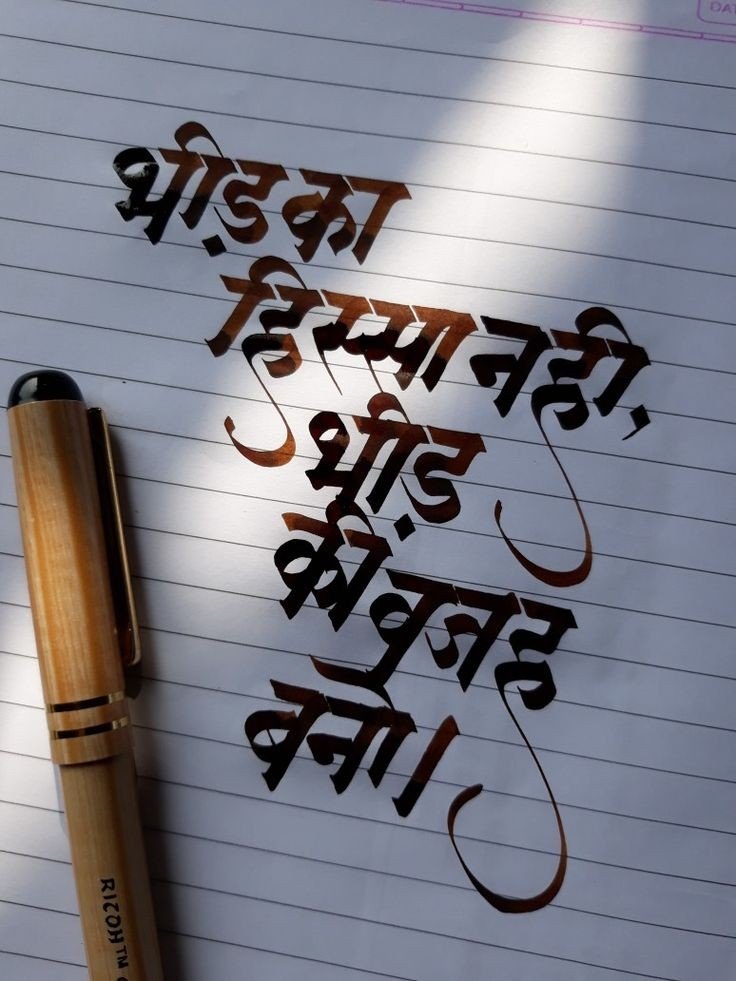 DAT
भीड़ का
हिस्सा नही,
भीड़
की वजह
बनो।